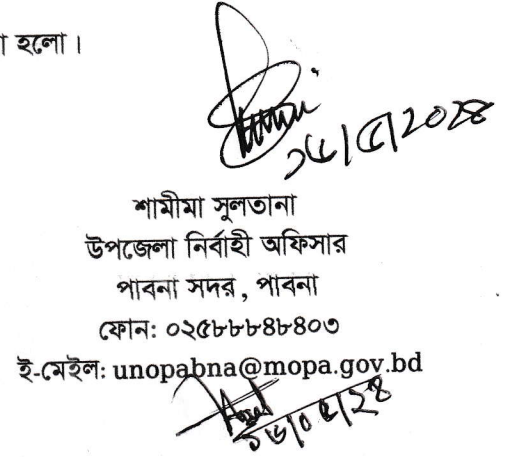 া হলো।
১৬/৫/২০২৪
শামীমা সুলতানা
উপজেলা নির্বাহী অফিসার
পাবনা সদর, পাবনা
ফোন: ০২৫৮৮৮৪৮৪০৩
ই-মেইল: unopabna@mopa.gov.bd
১৬/০৫/২৪